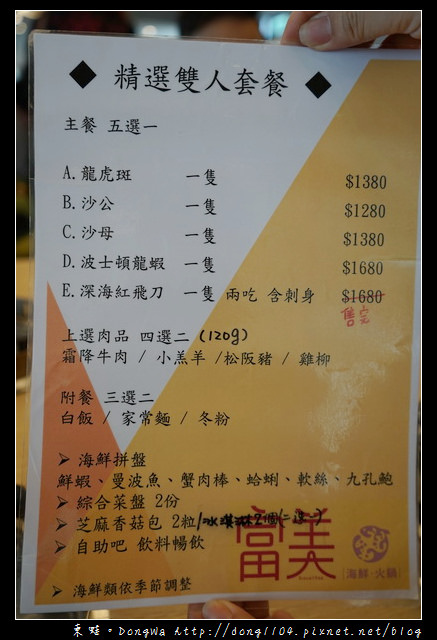 ◆ 精選雙人套餐 ◆
主餐 五選一
A.龍虎斑 一隻 $1380
B.沙公 一隻 $1280
C.沙母 一隻 $1380
D.波士頓龍蝦 一隻 $1680
E.深海紅飛刀 一隻 兩吃 含刺身 $1680
售完
上選肉品 四選二 (120g)
霜降牛肉 / 小羔羊 /松阪豬 / 雞柳
附餐 三選二
白飯 / 家常麵 / 冬粉
➢ 海鮮拼盤
鮮蝦、曼波魚、蟹肉棒、蛤蜊、軟絲、九孔鮑
➢ 綜合菜盤 2份
➢ 芝麻香菇包 2粒/冰淇淋2個(二選一)
➢ 自助吧 飲料暢飲
富美
海鮮·火鍋
➢ 海鮮類依季節調整
東蛙。DongWa http://dong1104.pixnet.net/blog